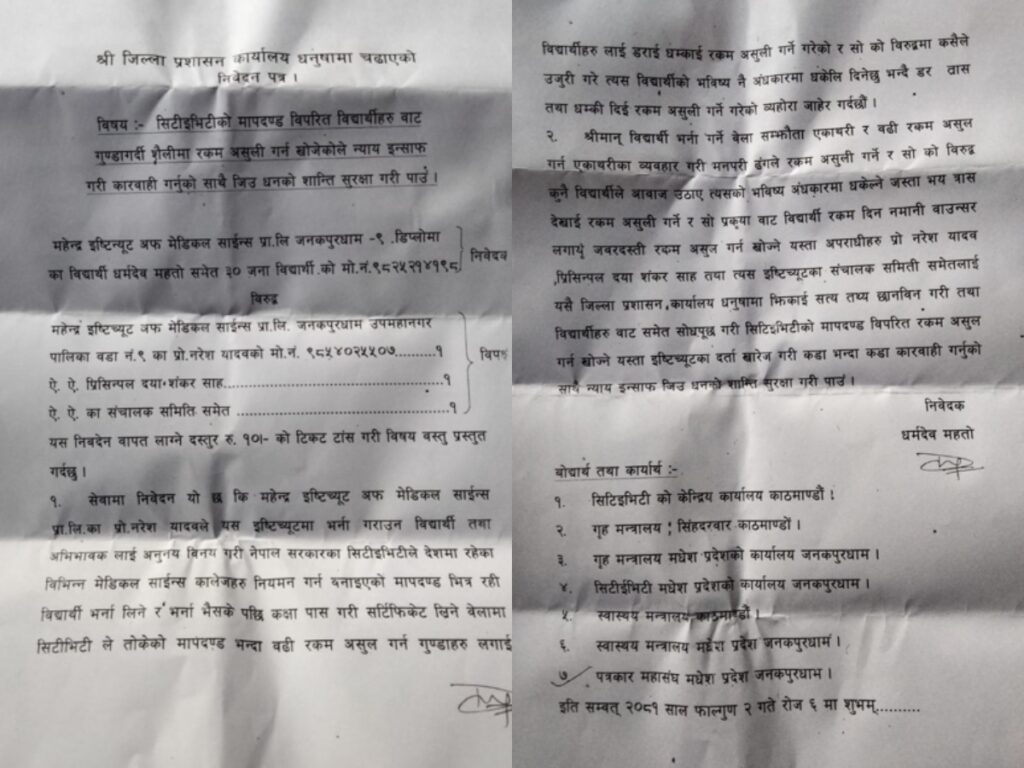 श्री जिल्ला प्रशासन कार्यालय धनुषामा चढाएको
निवेदन पत्र ।
विषय :- सिटीइभिटीको मापदण्ड विपरित विद्यार्थीहरु वाट
गुण्डागर्दी शैलीमा रकम असुली गर्न खोजेकोले न्याय इन्साफ
गरी कारवाही गर्नुको साथै जिउ धनको शान्ति सुरक्षा गरी पाउँ ।
महेन्द्र इष्टिन्युट अफ मेडिकल साईन्स प्रा.लि जनकपुरधाम -९ डिप्लोमा
का विद्यार्थी धर्मदेव महतो समेत ३० जना विद्यार्थी को मो.नं.९८२५२१४१९८
निवेदक
विरुद्द
महेन्द्र इष्टिच्यूट अफ मेडिकल साईन्स प्रा.लि. जनकपुरधाम उपमहानगर
पालिका वडा नं.९ का प्रो.नरेश यादवको मो.नं. ९८५४०२५५०७..........१
विपक्ष
ऐ. ऐ. प्रिसिन्पल दया शंकर साह.......................................१
ऐ. ऐ. का संचालक समिति समेत .......................................१
यस निवदेन वापत लाग्ने दस्तुर रु. १०।- को टिकट टांस गरी विषय वस्तु प्रस्तुत
गर्दछु ।
१. सेवामा निवेदन यो छ कि महेन्द्र इष्टिच्यूट अफ मेडिकल साईन्स
प्रा.लि.का प्रो.नरेश यादवले यस इष्टिच्यूटमा भर्ना गराउन विद्यार्थी तथा
अभिभावक लाई अनुनय बिनय गरी नेपाल सरकारका सिटीइभिटीले देशमा रहेका
विभिन्न मेडिकल साईन्स कालेजहरु नियमन गर्न वनाइएको मापदण्ड भित्र रही
विद्यार्थी भर्ना लिने र भर्ना भैसके पछि कक्षा पास गरी सर्टिफिकेट लिने वेलामा
सिटीभिटी ले तोकेको मापदण्ड भन्दा वढी रकम असुल गर्न गुण्डाहरु लगाई
विद्यार्थीहरु लाई डराई धम्काई रकम असुली गर्ने गरेको र सो को विरुद्रमा कसैले
उजुरी गरे त्यस विद्यार्थीको भविष्य नै अंधकारमा धकेलि दिनेछु भन्दै डर त्रास
तथा धम्की दिई रकम असुली गर्ने गरेको व्यहोरा जाहेर गर्दछौं ।
२. श्रीमान् विद्यार्थी भर्ना गर्ने बेला सम्झौता एकाथरी र वढी रकम असुल
गर्न एकाथरीका व्यवहार गरी मनपरी ढंगले रकम असुली गर्ने र सो को विरुद्द
कुनै विद्यार्थीले आवाज उठाए त्यसको भविष्य अंधकारमा धकेल्ने जस्ता भय त्रास
देखाई रकम असुली गर्ने र सो प्रकृया वाट विद्यार्थी रकम दिन नमानी वाउन्सर
लगायत जवरदस्ती रकम असुल गर्न खोज्ने यस्ता अपराधीहरु प्रो नरेश यादव
,प्रिसिन्पल दया शंकर साह तथा त्यस इष्टिच्यूटका संचालक समिती समेतलाई
यसै जिल्ला प्रशासन,कार्यालय धनुषामा झिकाई सत्य तथ्य छानविन गरी तथा
विद्यार्थीहरु वाट समेत सोधपूछ गरी सिटिइभिटीको मापदण्ड विपरित रकम असुल
गर्न खोज्ने यस्ता इष्टिच्यूटका दर्ता खारेज गरी कडा भन्दा कडा कारवाही गर्नुको
साथै न्याय इन्साफ जिउ धनको शान्ति सुरक्षा गरी पाउं ।
निवेदक
धर्मदेव महतो
वोधार्थ तथा कार्यार्थ :-
१. सिटिइभिटी को केन्द्रिय कार्यालय काठमाण्डौं ।
२. गृह मन्त्रालय ; सिंहदरवार काठमाण्डों ।
३. गृह मन्त्रालय मधेश प्रदेशको कार्यालय जनकपुरधाम ।
४. सिटीईभिटी मधेश प्रदेशको कार्यालय जनकपुरधाम ।
५. स्वास्थय मन्त्रालय काठमाण्डौं ।
६. स्वास्थय मन्त्रालय मधेश प्रदेश जनकपुरधाम ।
७ पत्रकार महासंघ मधेश प्रदेश जनकपुरधाम ।
इति सम्वत् २०८१ साल फाल्गुण २ गते रोज ६ मा शुभम्..........